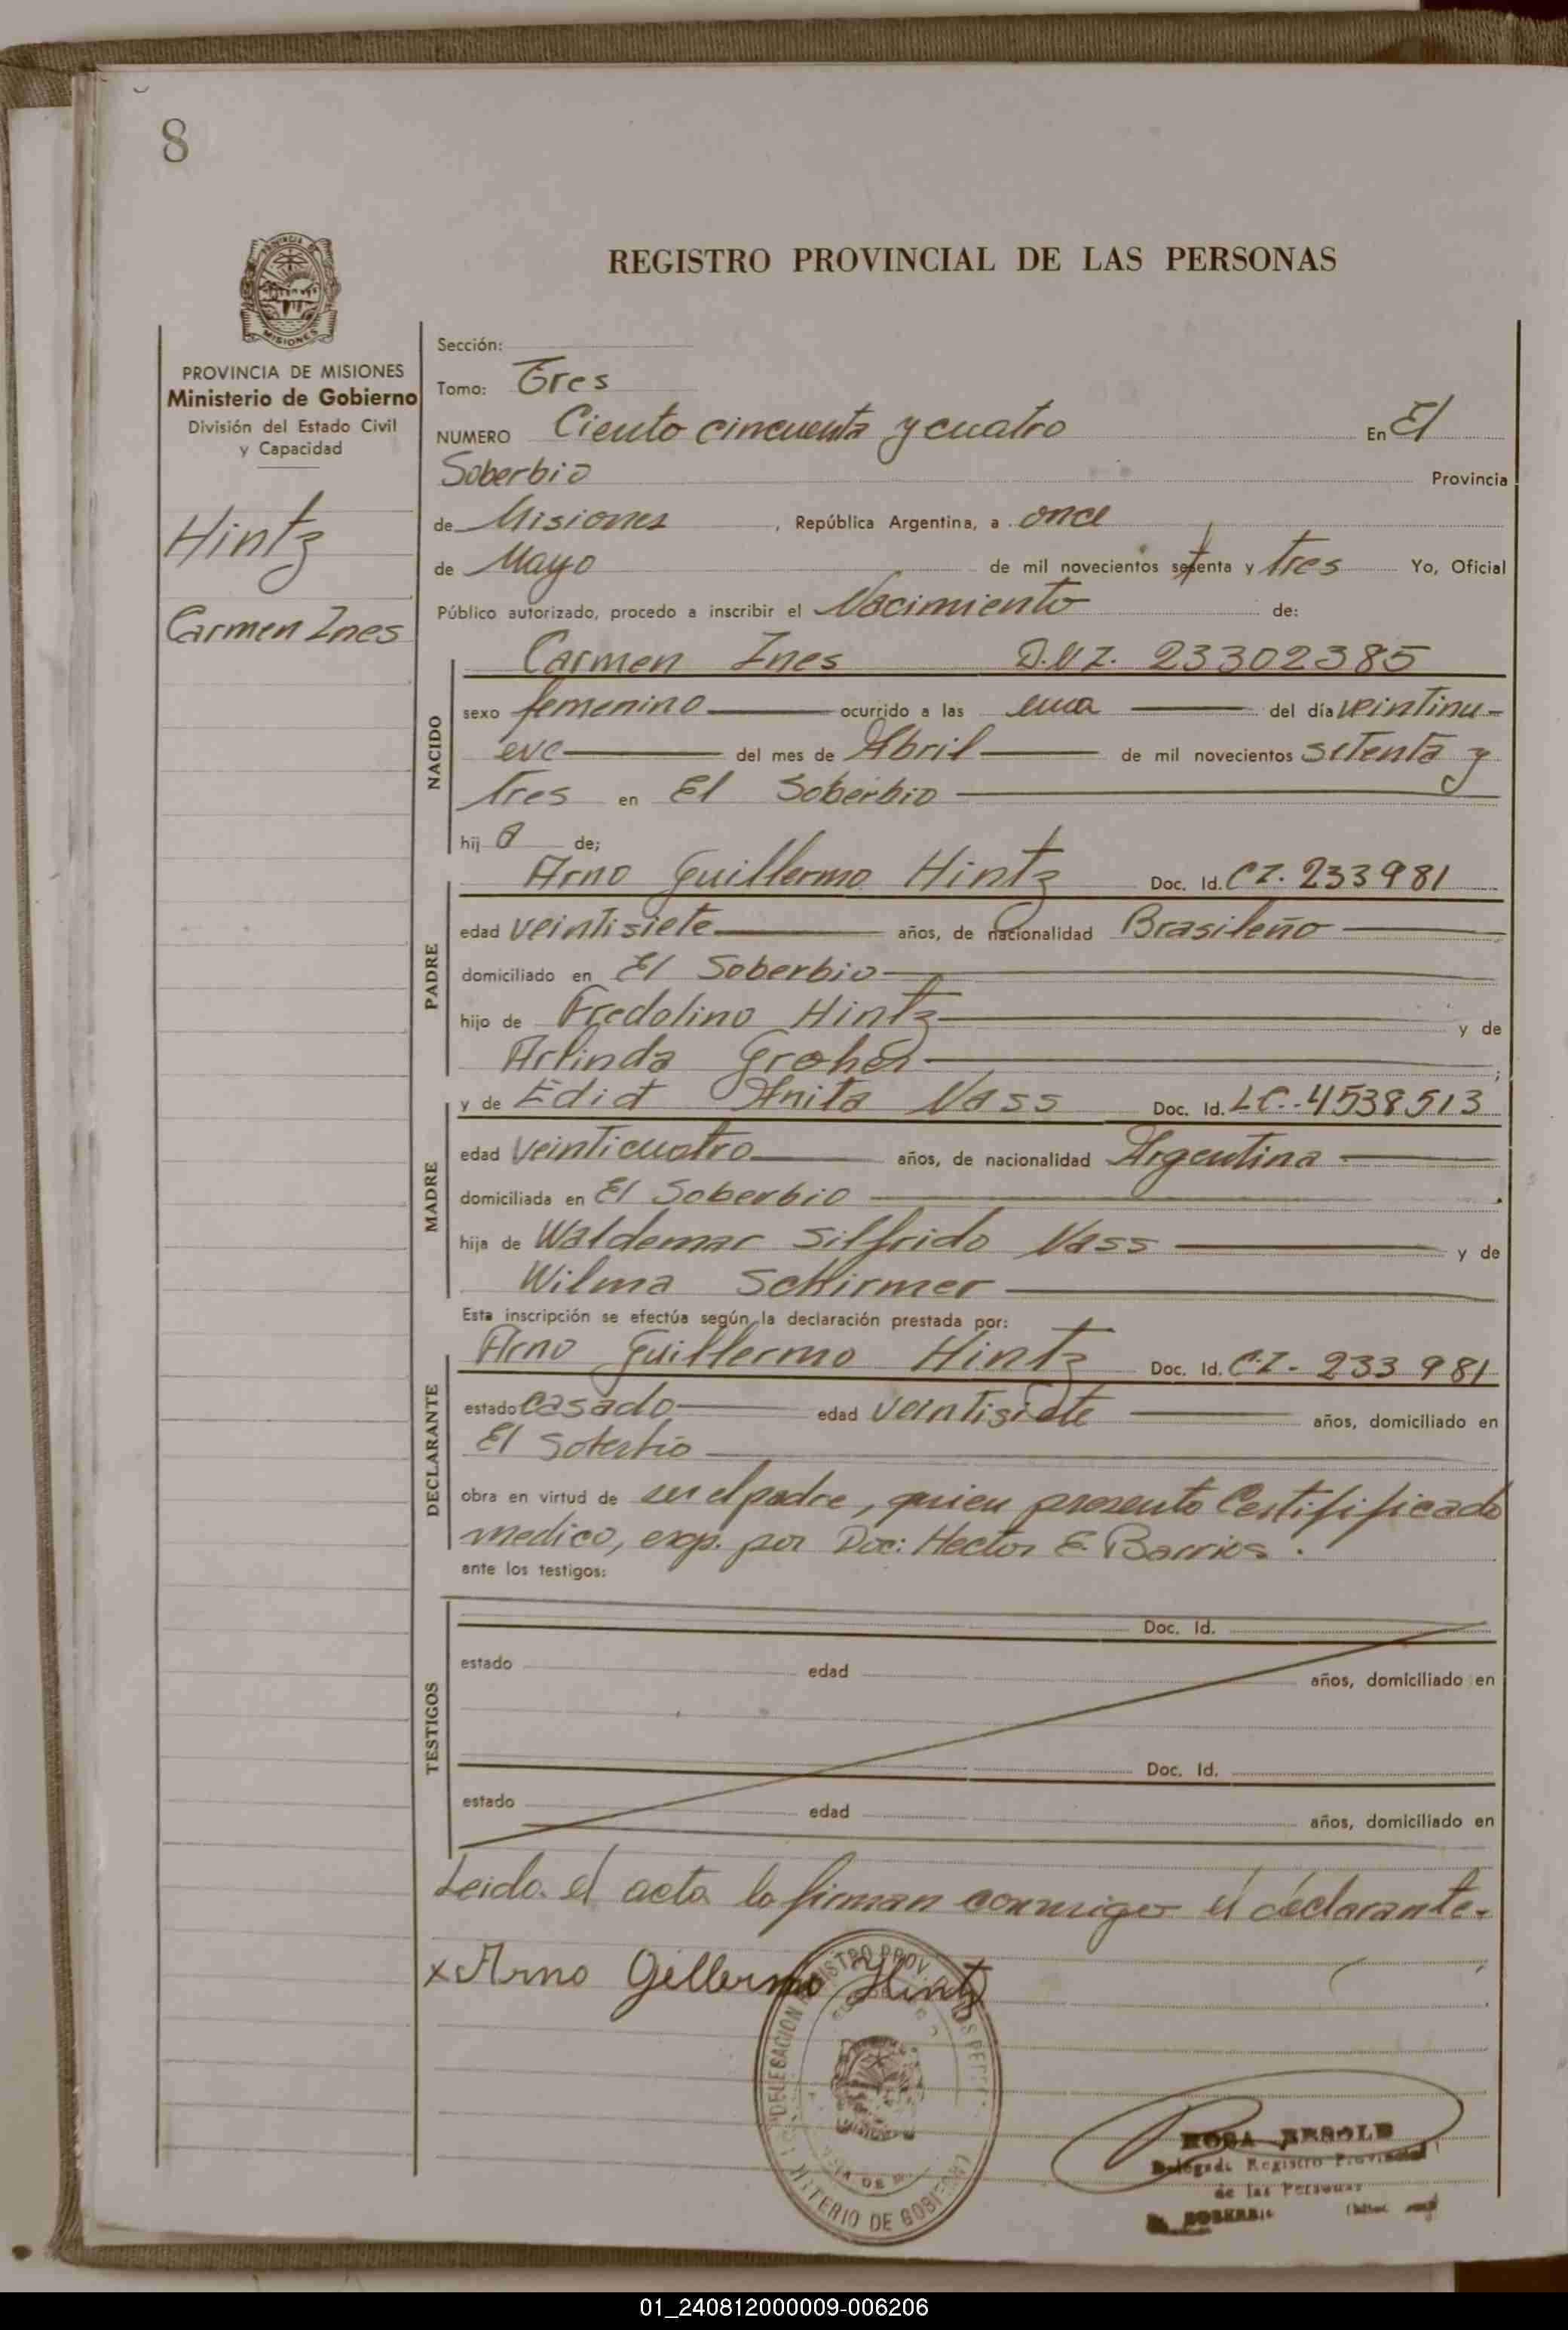 8
REGISTRO PROVINCIAL DE LAS PERSONAS
MISIONES
PROVINCIA DE MISIONES
Ministerio de Gobierno
División del Estado Civil
y Capacidad
Hintz
Carmen Ines
Sección:
Tomo: Tres
NUMERO Ciento cincuenta y cuatro En El
Soberbio Provincia
de Misiones, República Argentina, a once
de Mayo de mil novecientos setenta y tres Yo, Oficial
Público autorizado, procedo a inscribir el Nacimiento de:
NACIDO
Carmen Ines D.N.I. 23302385
sexo femenino ocurrido a las una del día veintinu-
eve del mes de Abril de mil novecientos setenta y
tres en El Soberbio
hij a de;
PADRE
Arno Guillermo Hintz Doc. Id. CI. 233981
edad veintisiete años, de nacionalidad Brasileño
domiciliado en El Soberbio
hijo de Fredolino Hintz y de
Arlinda ;
MADRE
y de Edit Anita Nass Doc. Id. LC.-4538513
edad veinticuatro años, de nacionalidad Argentina
domiciliada en El Soberbio
hija de Waldemar Silfrido Nass y de
Wilma Schirmer
Esta inscripción se efectúa según la declaración prestada por:
DECLARANTE
Arno Guillermo Hintz Doc. Id. C.I- 233 981
estado casado edad veintisiete años, domiciliado en
El Soberbio
obra en virtud de ser el padre, quien presento Certifificado
medico, exp. por Doc: Hector E. Barrios.
ante los testigos:
TESTIGOS
Doc. Id.
estado edad años, domiciliado en
Doc. Id.
estado edad años, domiciliado en
Leida el acta la firman conmigo el declarante.
x Arno Gillermo Hintz
DELEGACION REGISTRO PROV. DE GOBIERNO
ROSA
Delegada Registro Provincial
de las Personas
EL SOBERBIO
01_240812000009-006206